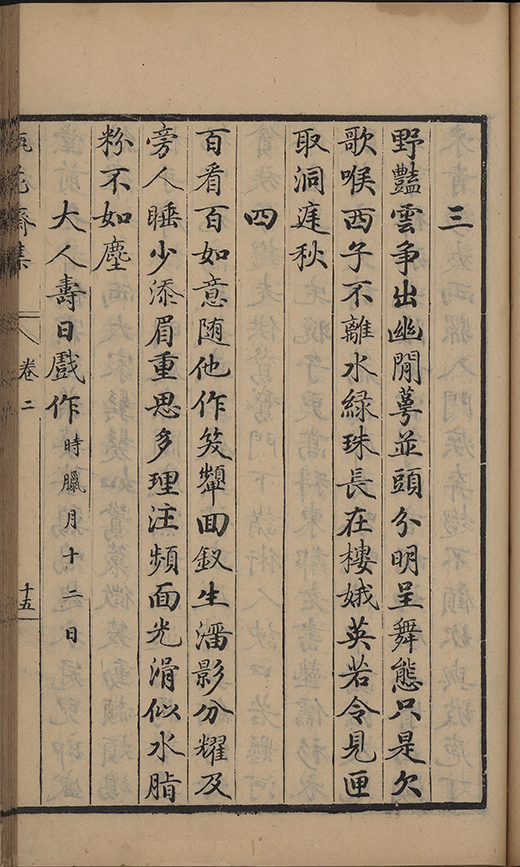 三
野豔雲爭出幽閒萼並頭分明呈舞態只是欠
歌喉西子不離水綠珠長在樓娥英若令見匣
取洞庭秋
四
百看百如意隨他作笑顰回釵生潘影分耀及
旁人睡少添眉重思多理注頻面光滑似水脂
粉不如塵
大人壽日戲作時臘月十二日
瓶花齋集
卷二
十五